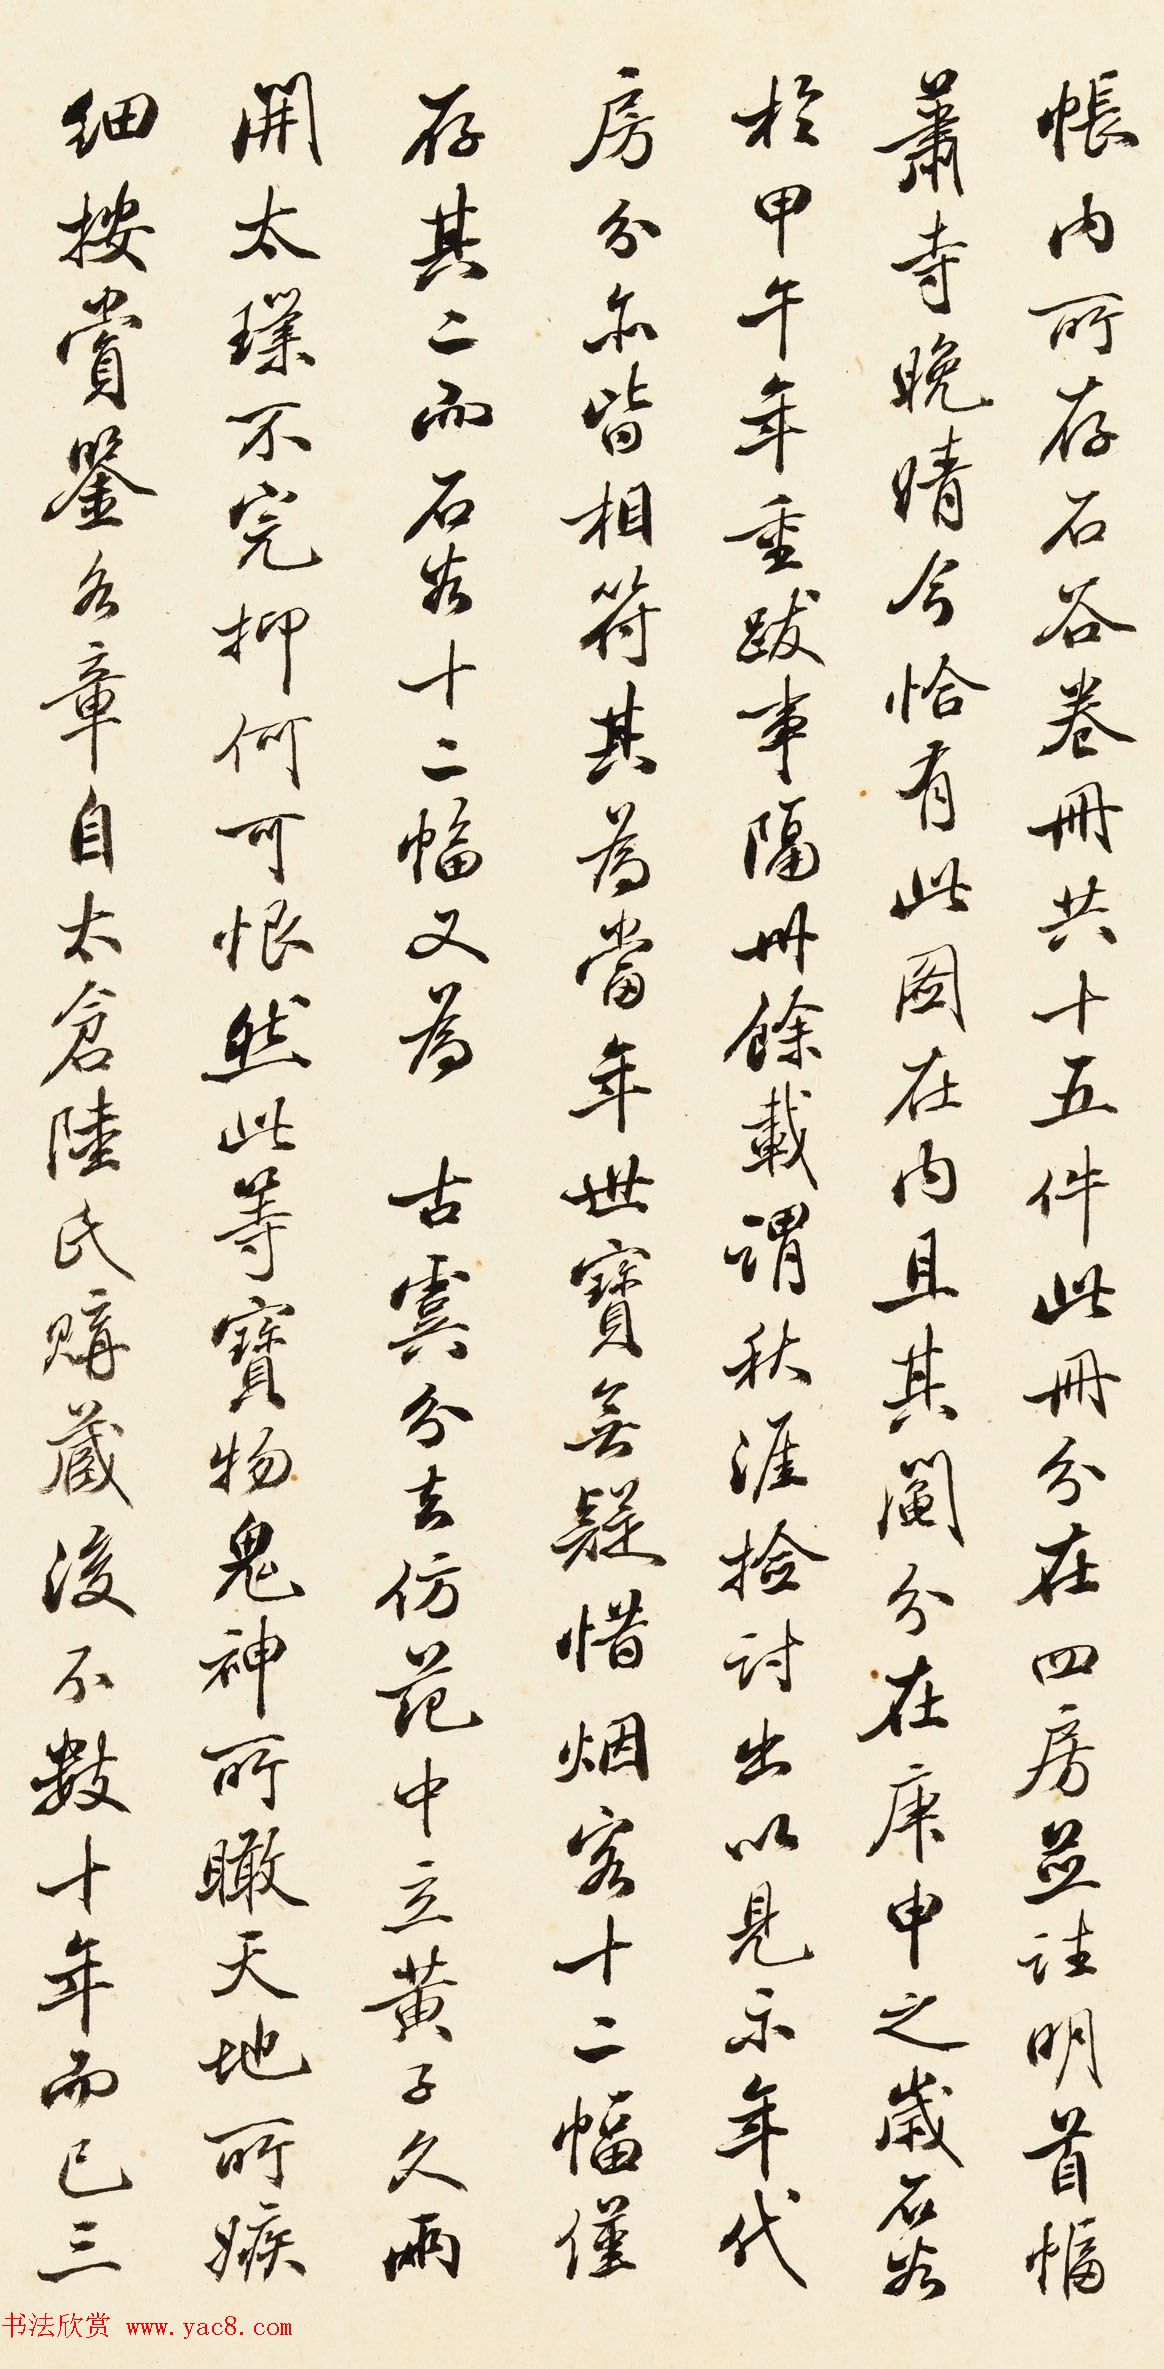 帳内所存石谷卷冊共十五件此冊分在四房並註明首幅
蕭寺晚晴今恰有此圖在内且其鬮分在庚申之歲石谷
於甲午年重跋事隔卅餘載謂秋涯撿討出以見示年代
房分亦皆相符其為當年世寶無疑惜烟客十二幅僅
存其二而石谷十二幅又為 古虞分去仿范中立黃子久兩
開太璞不完抑何可恨然此等寶物鬼神所瞰天地所嫉
細按賞鑒各章自太倉陸氏購藏後不數十年而已三
书法欣赏 www.yac8.com